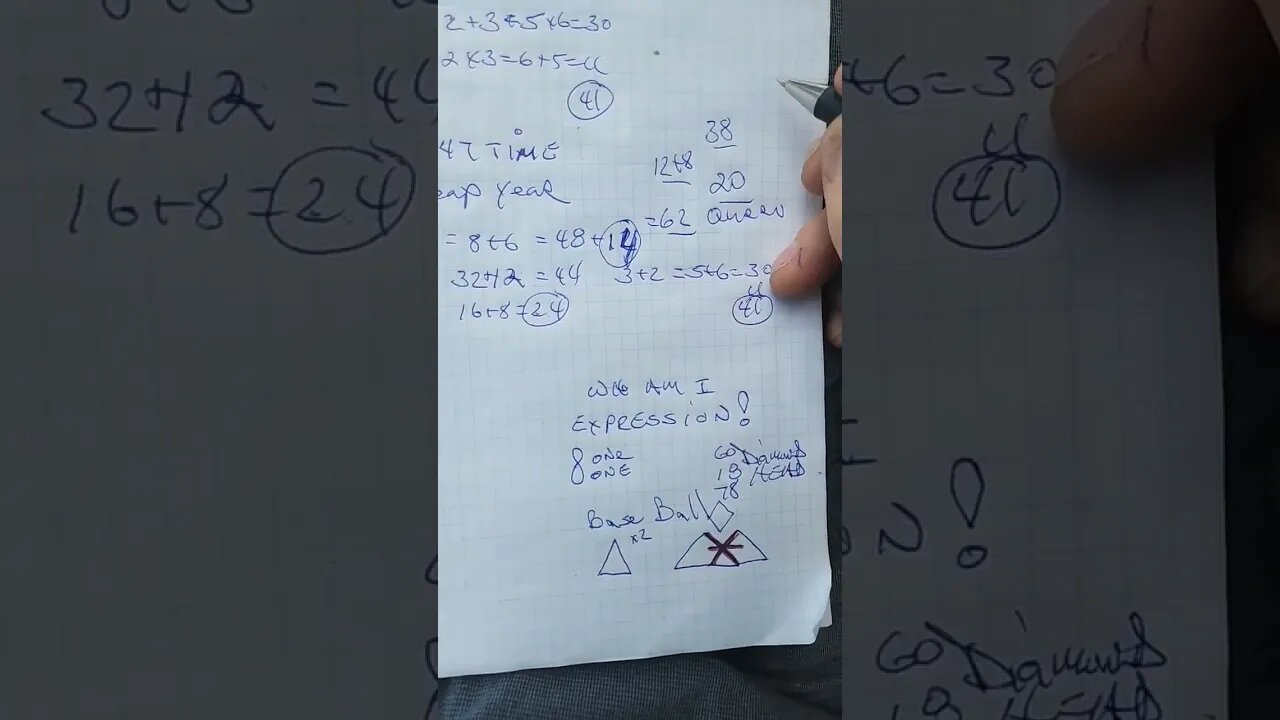 2+3+5×6=30
2×3=6+5=11
41
38
47 TIME
12+8
20
eap Year
=62 Queen
= 8+6 = 48+14
32+12 = 44
3+2 = 5+6=30
11
16+8=24
41
WHO AM I
EXPRESSION!
8 ONE
ONE
60 Diamonds
18 HEAD
78
Base Ball
×2